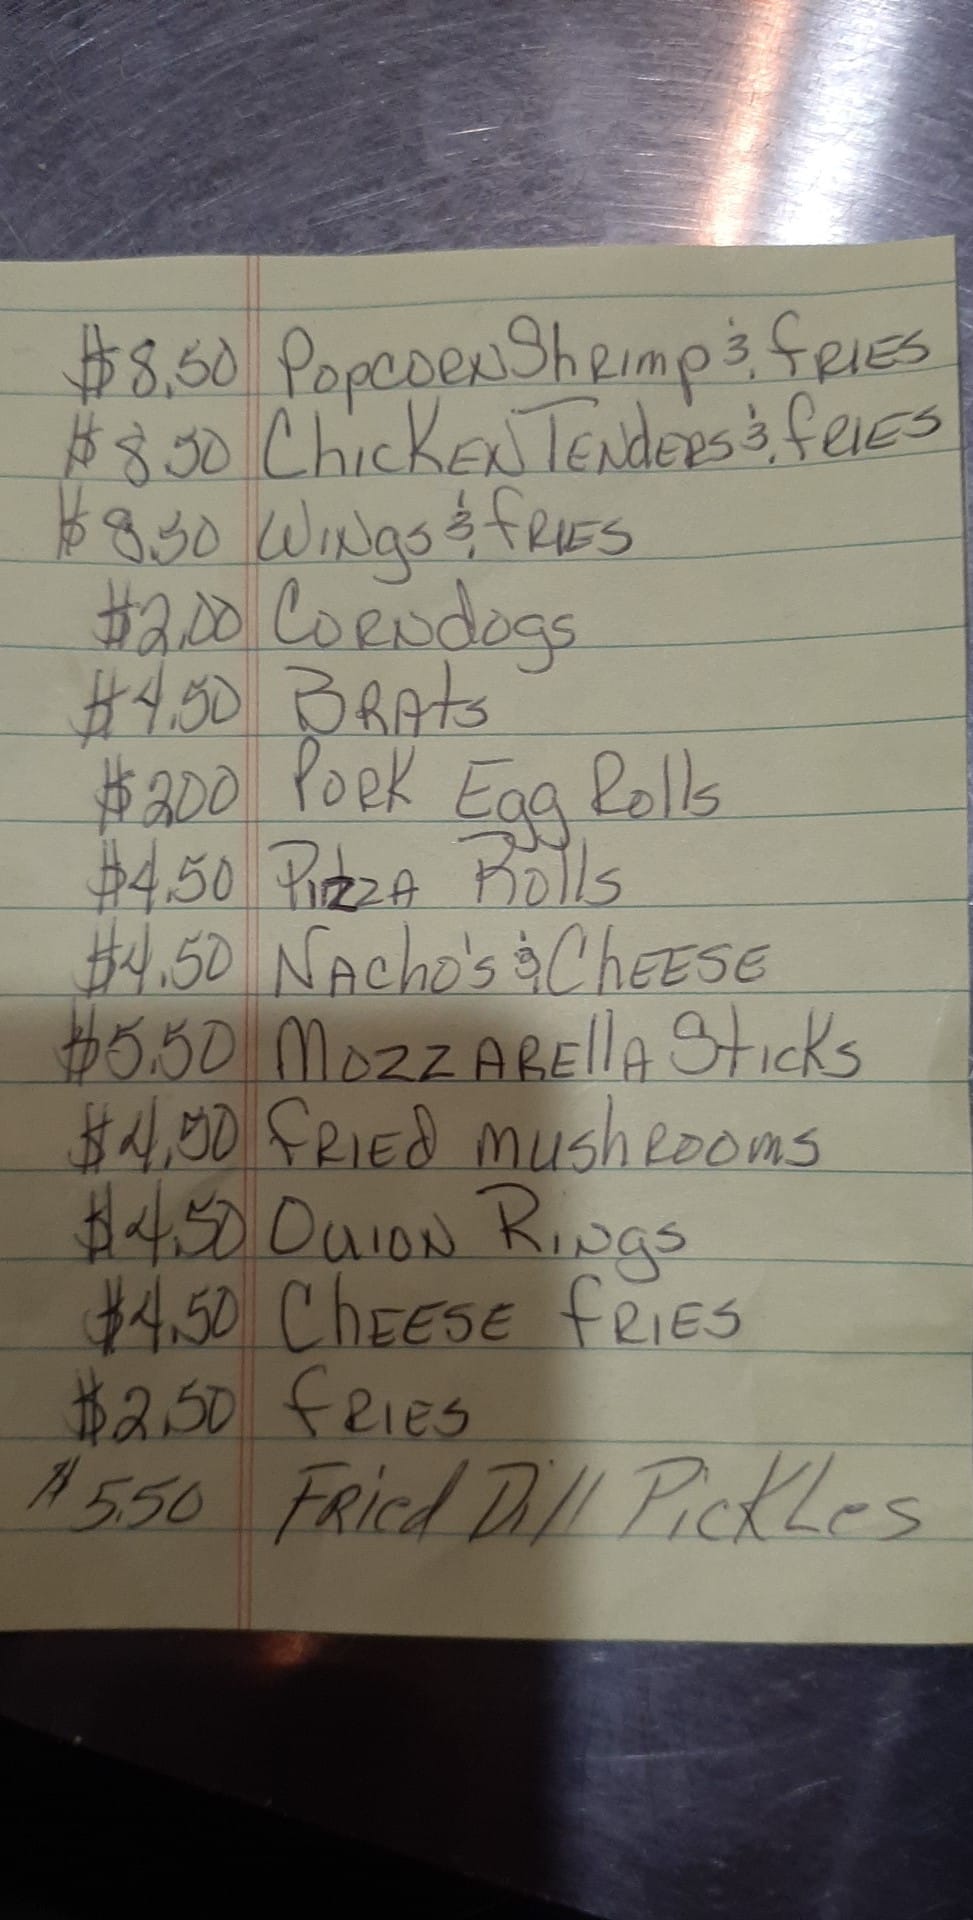 $8.50 Popcorn Shrimp & fries
$8.50 Chicken Tenders & fries
$8.50 Wings & fries
$2.00 Corndogs
$4.50 Brats
$200 Pork Egg Rolls
$4.50 Pizza Rolls
$4.50 Nacho's & Cheese
$5.50 Mozzarella Sticks
$4.50 fried mushrooms
$4.50 Onion Rings
$4.50 Cheese fries
$2.50 fries
$5.50 Fried Dill Pickles